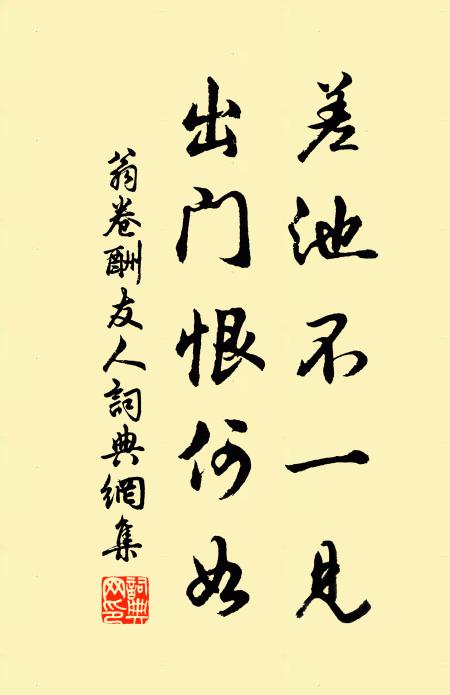 差池不一见
出门恨何如
翁卷酬友人詞典網集
詞典网印